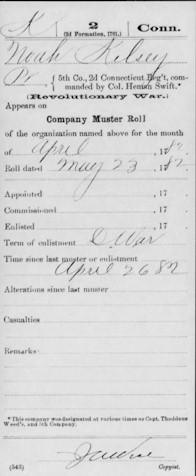 K 2 Conn.
(2d Formation, 1781.)
Noah Kelsey
Pr., { 5th Co., 2d Connecticut Reg't, com-
manded by Col. Heman Swift.*
(Revolutionary War.)
Appears on
Company Muster Roll
of the organization named above for the month
of April, 1782.
Roll dated May 23, 1782.
Appointed , 17 .
Commissioned , 17 .
Enlisted , 17 .
Term of enlistment D. War
Time since last muster or enlistment
April 26 82
Alterations since last muster
Casualties
Remarks:
*This company was designated at various times as Capt. Thaddeus
Weed's, and 5th Company.
(543) Copyist.